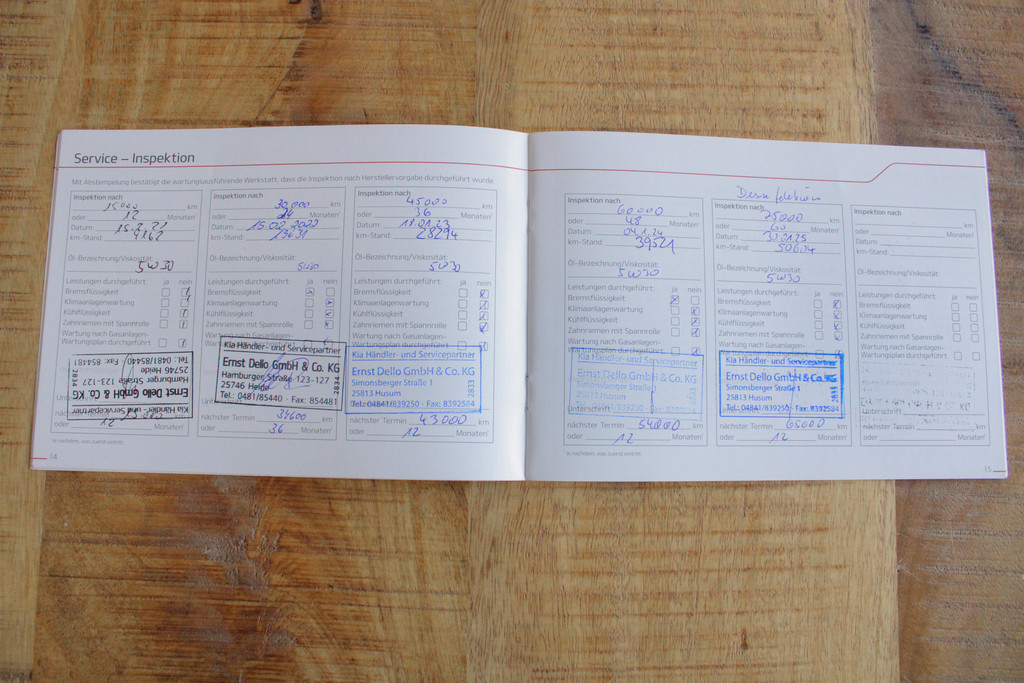 Service – Inspektion
Mit Abstempelung bestätigt die wartungsausführende Werkstatt, dass die Inspektion nach Herstellervorgabe durchgeführt wurde.
Inspektion nach
15000 km
oder 12 Monaten¹
Datum:
km-Stand: 9162
Öl-Bezeichnung/Viskosität:
5W30
Leistungen durchgeführt: ja nein
Bremsflüssigkeit
Klimaanlagenwartung
Kühlflüssigkeit
Zahnriemen mit Spannrolle
Wartung nach Gasanlagen-
Wartungsplan durchgeführt
Kia Händler- und Servicepartner
Ernst Dello GmbH & Co. KG
Hamburger Straße 123-127
25746 Heide
Tel.: 0481/85440 · Fax: 854481
2834
oder Monaten¹
Inspektion nach
30.000 km
oder 24 Monaten¹
Datum: 15.02.2022
km-Stand:
Öl-Bezeichnung/Viskosität:
5W30
Leistungen durchgeführt: ja nein
Bremsflüssigkeit
Klimaanlagenwartung
Kühlflüssigkeit
Zahnriemen mit Spannrolle
Wartung nach Gasanlagen-
Kia Händler- und Servicepartner
Ernst Dello GmbH & Co. KG
Hamburger Straße 123-127
25746 Heide
Tel.: 0481/85440 · Fax: 854481
2834
nächster Termin km
oder 36 Monaten¹
Inspektion nach
45000 km
oder 36 Monaten¹
Datum: 18.01.23
km-Stand: 28294
Öl-Bezeichnung/Viskosität:
5W30
Leistungen durchgeführt: ja nein
Bremsflüssigkeit
Klimaanlagenwartung
Kühlflüssigkeit
Zahnriemen mit Spannrolle
Wartung nach Gasanlagen-
Wartungsplan durchgeführt
Kia Händler- und Servicepartner
Ernst Dello GmbH & Co. KG
Simonsberger Straße 1
25813 Husum
Tel.: 04841/839250 · Fax: 8392584
2833
nächster Termin 43000 km
oder 12 Monaten¹
¹Je nachdem, was zuerst eintritt.
14
Inspektion nach
60000 km
oder 48 Monaten¹
Datum: 04.1.24
km-Stand: 39521
Öl-Bezeichnung/Viskosität:
5W30
Leistungen durchgeführt: ja nein
Bremsflüssigkeit
Klimaanlagenwartung
Kühlflüssigkeit
Zahnriemen mit Spannrolle
Wartung nach Gasanlagen-
Wartungsplan durchgeführt
Kia Händler- und Servicepartner
Ernst Dello GmbH & Co. KG
Simonsberger Straße 1
25813 Husum
Tel.: 04841/839250 · Fax: 8392584
2833
Unterschrift
nächster Termin 54000 km
oder 12 Monaten¹
Desinfektion
Inspektion nach
75000 km
oder 60 Monaten¹
Datum: 30.01.25
km-Stand: 50604
Öl-Bezeichnung/Viskosität:
5W30
Leistungen durchgeführt: ja nein
Bremsflüssigkeit
Klimaanlagenwartung
Kühlflüssigkeit
Zahnriemen mit Spannrolle
Wartung nach Gasanlagen-
Kia Händler- und Servicepartner
Ernst Dello GmbH & Co. KG
Simonsberger Straße 1
25813 Husum
Tel.: 04841/839250 · Fax: 8392584
2833
nächster Termin 65000 km
oder 12 Monaten¹
Inspektion nach
km
oder Monaten¹
Datum:
km-Stand:
Öl-Bezeichnung/Viskosität:
Leistungen durchgeführt: ja nein
Bremsflüssigkeit
Klimaanlagenwartung
Kühlflüssigkeit
Zahnriemen mit Spannrolle
Wartung nach Gasanlagen-
Wartungsplan durchgeführt
Unterschrift
nächster Termin km
oder Monaten¹
¹Je nachdem, was zuerst eintritt.
15